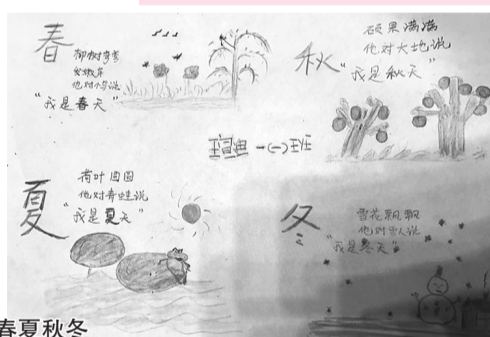 春
柳树弯弯
发嫩芽
他对小鸟说
"我是春天"
秋
硕果满满
他对大地说
"我是秋天"
一(一)班
夏
荷叶圆圆
他对青蛙说
"我是夏天"
冬
雪花飘飘
他对雪人说
"我是冬天"
春夏秋冬